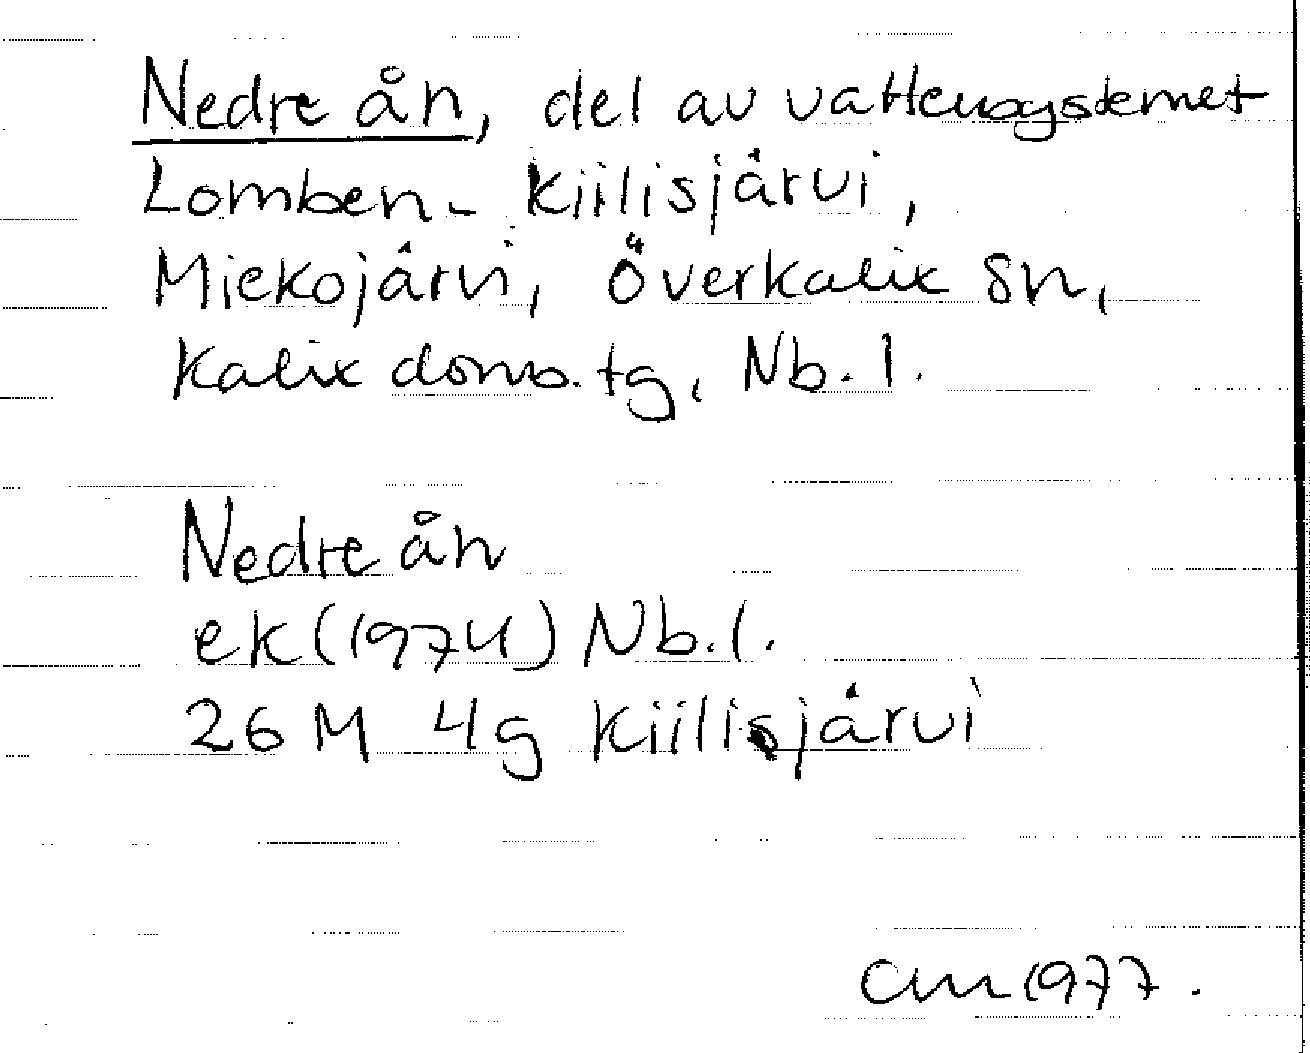 Nedre ån, del av vattensystemet
Lomben - Kiilisjärvi,
Miekojärvi, Överkalix sn,
Kalix doms. tg, Nb. l.
Nedre ån
ek (1974) Nb. l.
26 M 4g Kiilisjärvi
CM 1977.